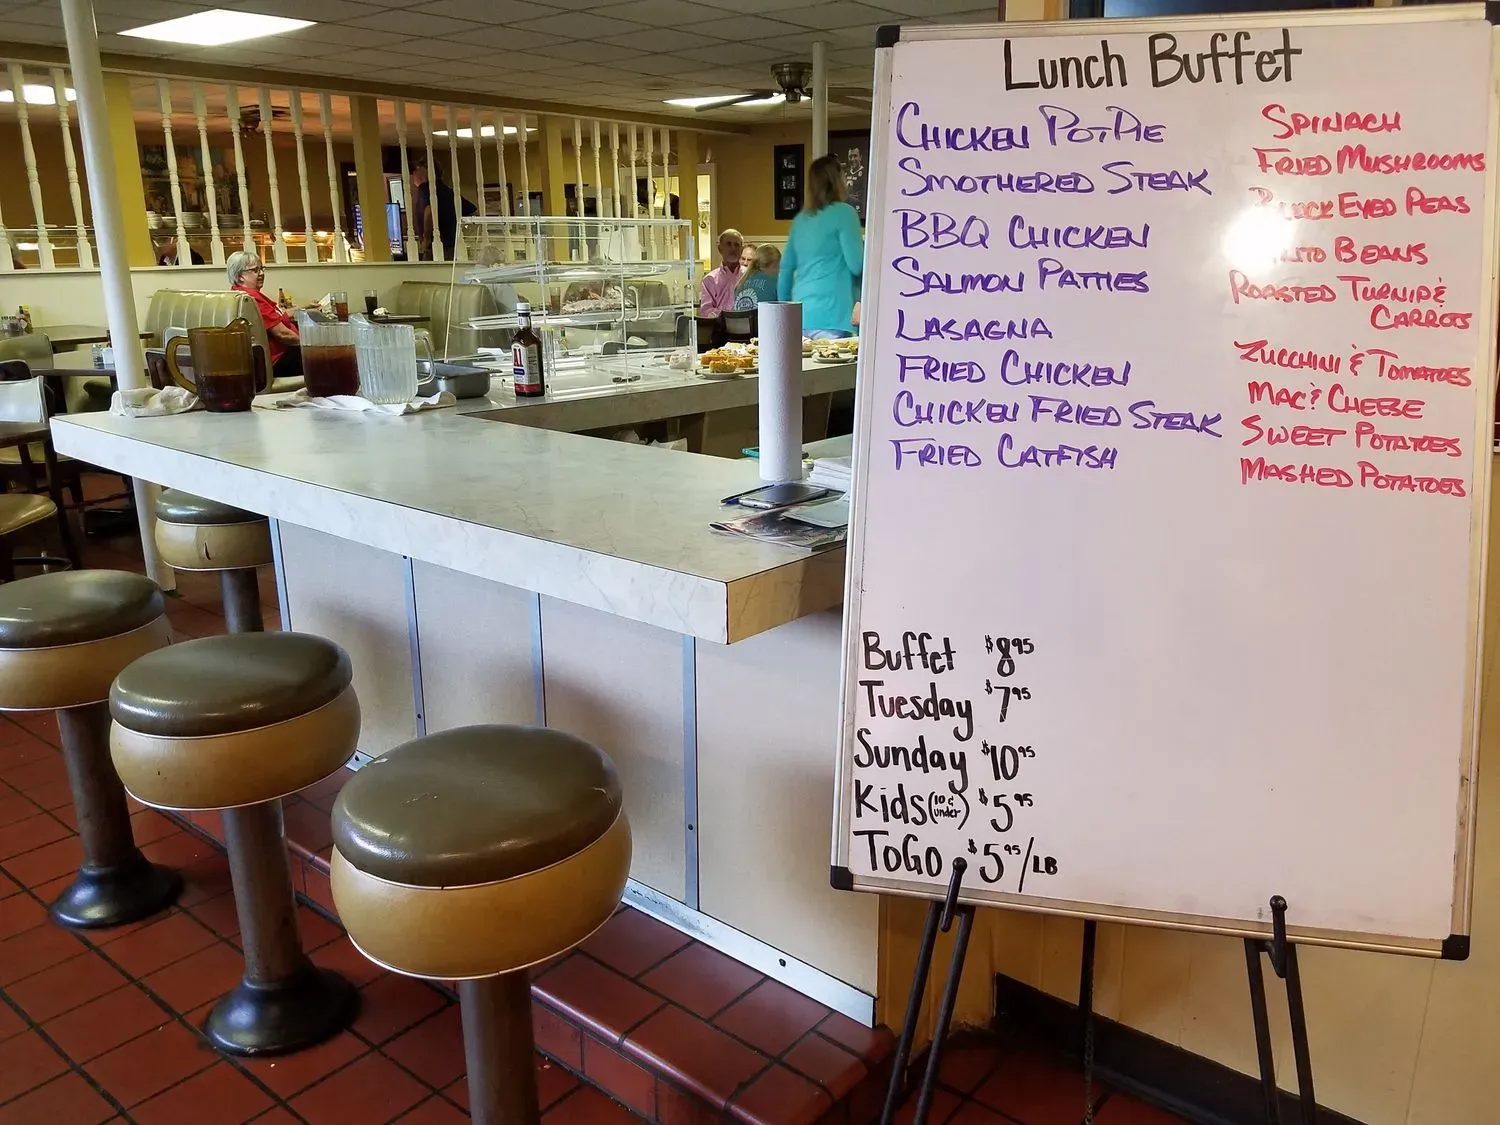 Lunch Buffet
Chicken Pot Pie
Smothered Steak
BBQ Chicken
Salmon Patties
Lasagna
Fried Chicken
Chicken Fried Steak
Fried Catfish
Spinach
Fried Mushrooms
Eyed Peas
Beans
Roasted Turnip &
Carrots
Zucchini & Tomatoes
Mac & Cheese
Sweet Potatoes
Mashed Potatoes
Buffet $8.95
Tuesday $7.95
Sunday $10.95
Kids (10 & under) $5.95
ToGo $5.95/LB
A1